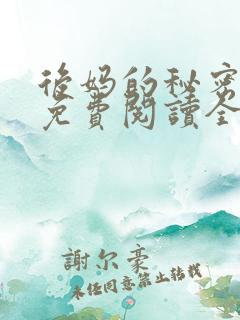 後妈的秘密
免費閱讀全
謝尔豪
未经同意禁止转载